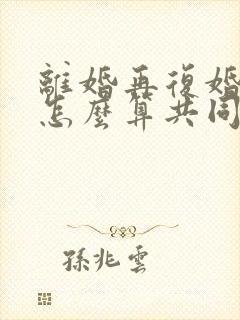 離婚再復婚
怎麼算共同
孫兆雲